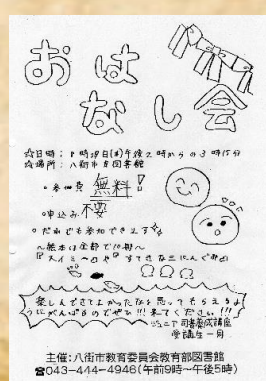 おはなし会
☆場所：八街市図書館
・参加費 無料！
・申込み 不要
・だれでも参加できます
〜絵本は全部で10冊〜
『スイミー』や『すてきな三にんぐみ』
楽しんできてよかったなと思ってもらえるよ
うにがんばるのでぜひ!!!来てください!!!
ジュニア司書養成講座
受講生一同
主催：八街市教育委員会教育部図書館
☎043-444-4946(午前9時〜午後5時)